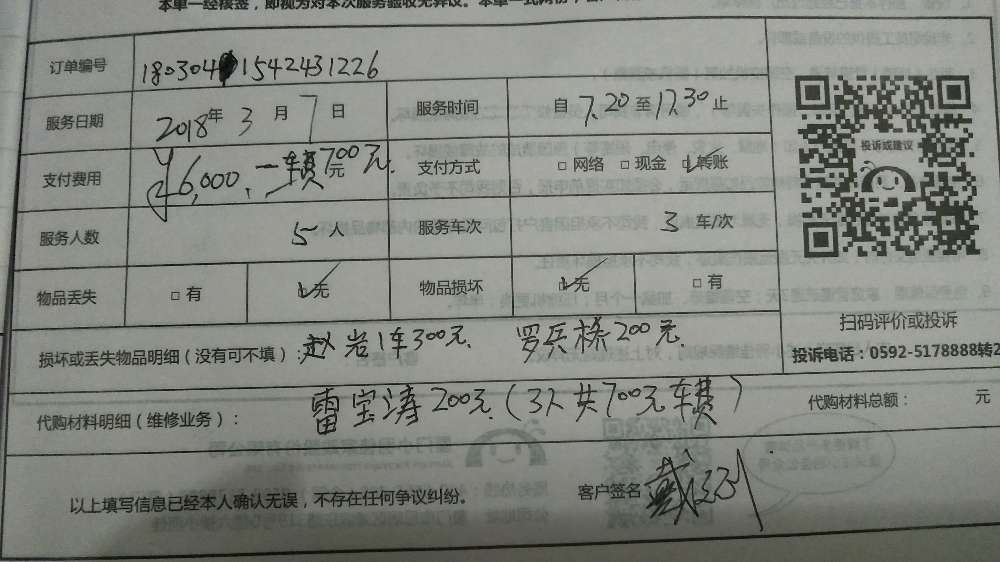 本单一经核签，即视为对本次服务验收无异议。本单一式两份
订单编号 180304 1542431226
服务日期 2018年 3 月 7 日 服务时间 自 7.20 至 17.30 止
支付费用 ¥6,000, 一车费700元 元 支付方式 □ 网络 □ 现金 ☑ 转账
服务人数 5 人 服务车次 3 车/次
物品丢失 □ 有 ☑ 无 物品损坏 ☑ 无 □ 有
损坏或丢失物品明细（没有可不填）： 赵岩1车300元. 罗兵 200元
代购材料明细（维修业务）： 雷宝涛200元（3人共700元车费） 代购材料总额： 元
以上填写信息已经本人确认无误，不存在任何争议纠纷。 客户签名 戴
投诉或建议
扫码评价或投诉
投诉电话：0592-5178888转2